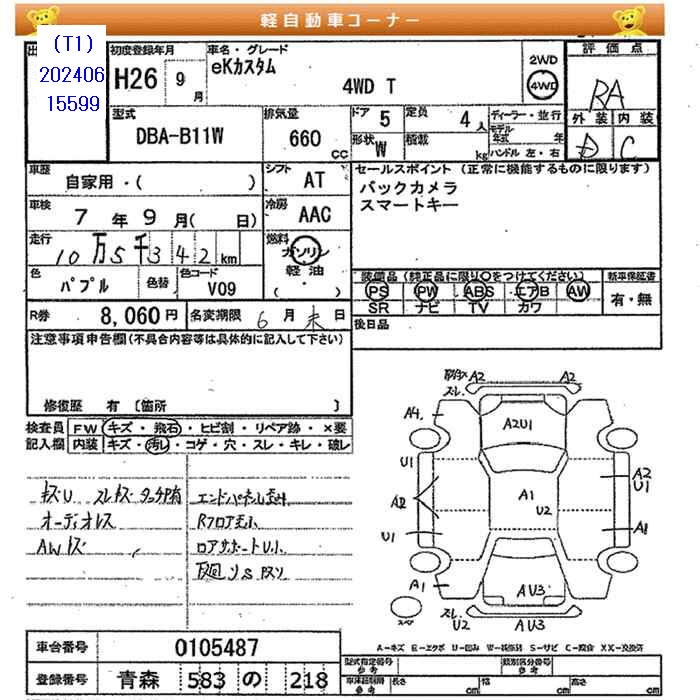 軽自動車コーナー
(T1)
202406
15599
初度登録年月
H26 9月
車名・グレード
eKカスタム
4WD T
2WD
4WD
評価点
RA
外装 内装
D C
型式
DBA-B11W
排気量
660 CC
ドア 5
定員 4人
形状 W
積載 kg
ディーラー・並行
モデル年式 年
ハンドル 左・右
車歴
自家用・( )
シフト AT
セールスポイント (正常に機能するものに限ります)
バックカメラ
スマートキー
車検
7年9月( 日)
冷房 AAC
走行
10万5千342km
燃料
ガソリン
軽油
( )
色 パプル
色替
色コード V09
装備品 (純正品に限り○をつけてください)
PS PW ABS エアB AW
SR ナビ TV カワ
新車保証書
有・無
R券 8,060円
名変期限 6月末日
後日品
注意事項申告欄(不具合内容等は具体的に記入して下さい)
修復歴 有 〔箇所 〕
検査員
記入欄
FW キズ・飛石・ヒビ割・リペア跡・×要
内装 キズ・汚レ・コゲ・穴・スレ・キレ・破レ
オーディオレス
AWキズ
A2 A2
スレ
A4
A2U1
U1
A2
U1
A1
U2
A2
U1
A1
A1
AU3
スレ
U2 AU3
スペア
車台番号 0105487
登録番号 青森 583 の 218
A-キズ E-エクボ U-凹み W-補修跡 S-サビ C-腐食 XX-交換済
型式指定番号
参考
類別区分番号
参考
車体総制限
参考
長さ cm
幅 cm
高さ cm